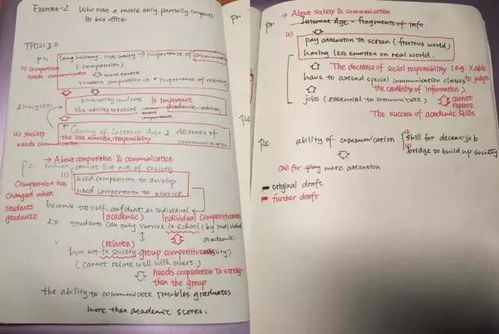 Exercise-2 Who star a movie only partially impacts
its box office.
TPO31 2.0
P1: long history, live variety → importance of communication
(1) competition needs communication
(competition)
more severe
modern competition → * importance of
Is important
academic
(2) society needs communication
Coming of Internet Age → decrease of communication
the less emotion/responsibility
P2: → About competition & communication
human cannot live out of society
(1)
need competition to develop
need cooperation to survive
Competition has changed when students graduate
become too self-confident as individual
(academic) Individual Competitiveness
ex. students can only survive in school (by individual academic
(relation)
but not in society group competitiveness
(cannot relate well with others)
Needs cooperation to strengthen the group
the ability to communicate troubles graduates
more than academic scores.
P3: → About society & communication
Internet Age → fragments of info.
(1)
pay attention to screen (fictitious world)
having less emotion on real world.
The decrease of social responsibility
have to attend special communication classes to judge
the capability of information)
jobs (essential to communicate)
cannot replace
The success of academic skills
P4: ability of communication
skill for decent job
bridge to build up society
Call for pay more attention
original draft
further draft